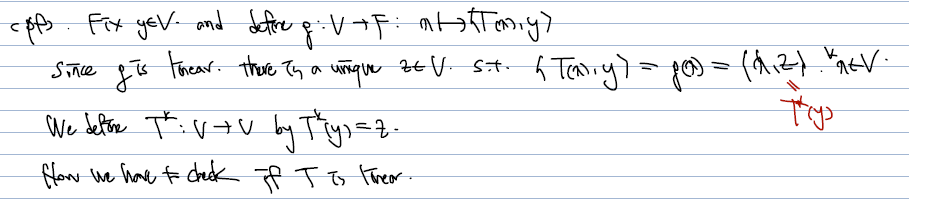 <pf>. Fix y∈V. and define g : V → F : x ↦ ⟨T(x), y⟩
Since g is linear. there is a unique z∈V. s.t. ⟨T(x), y⟩ = g(x) = ⟨x, z⟩. ∀x∈V.
= T*(y)
We define T* : V → V by T*(y) = z.
Now we have to check if T is linear.